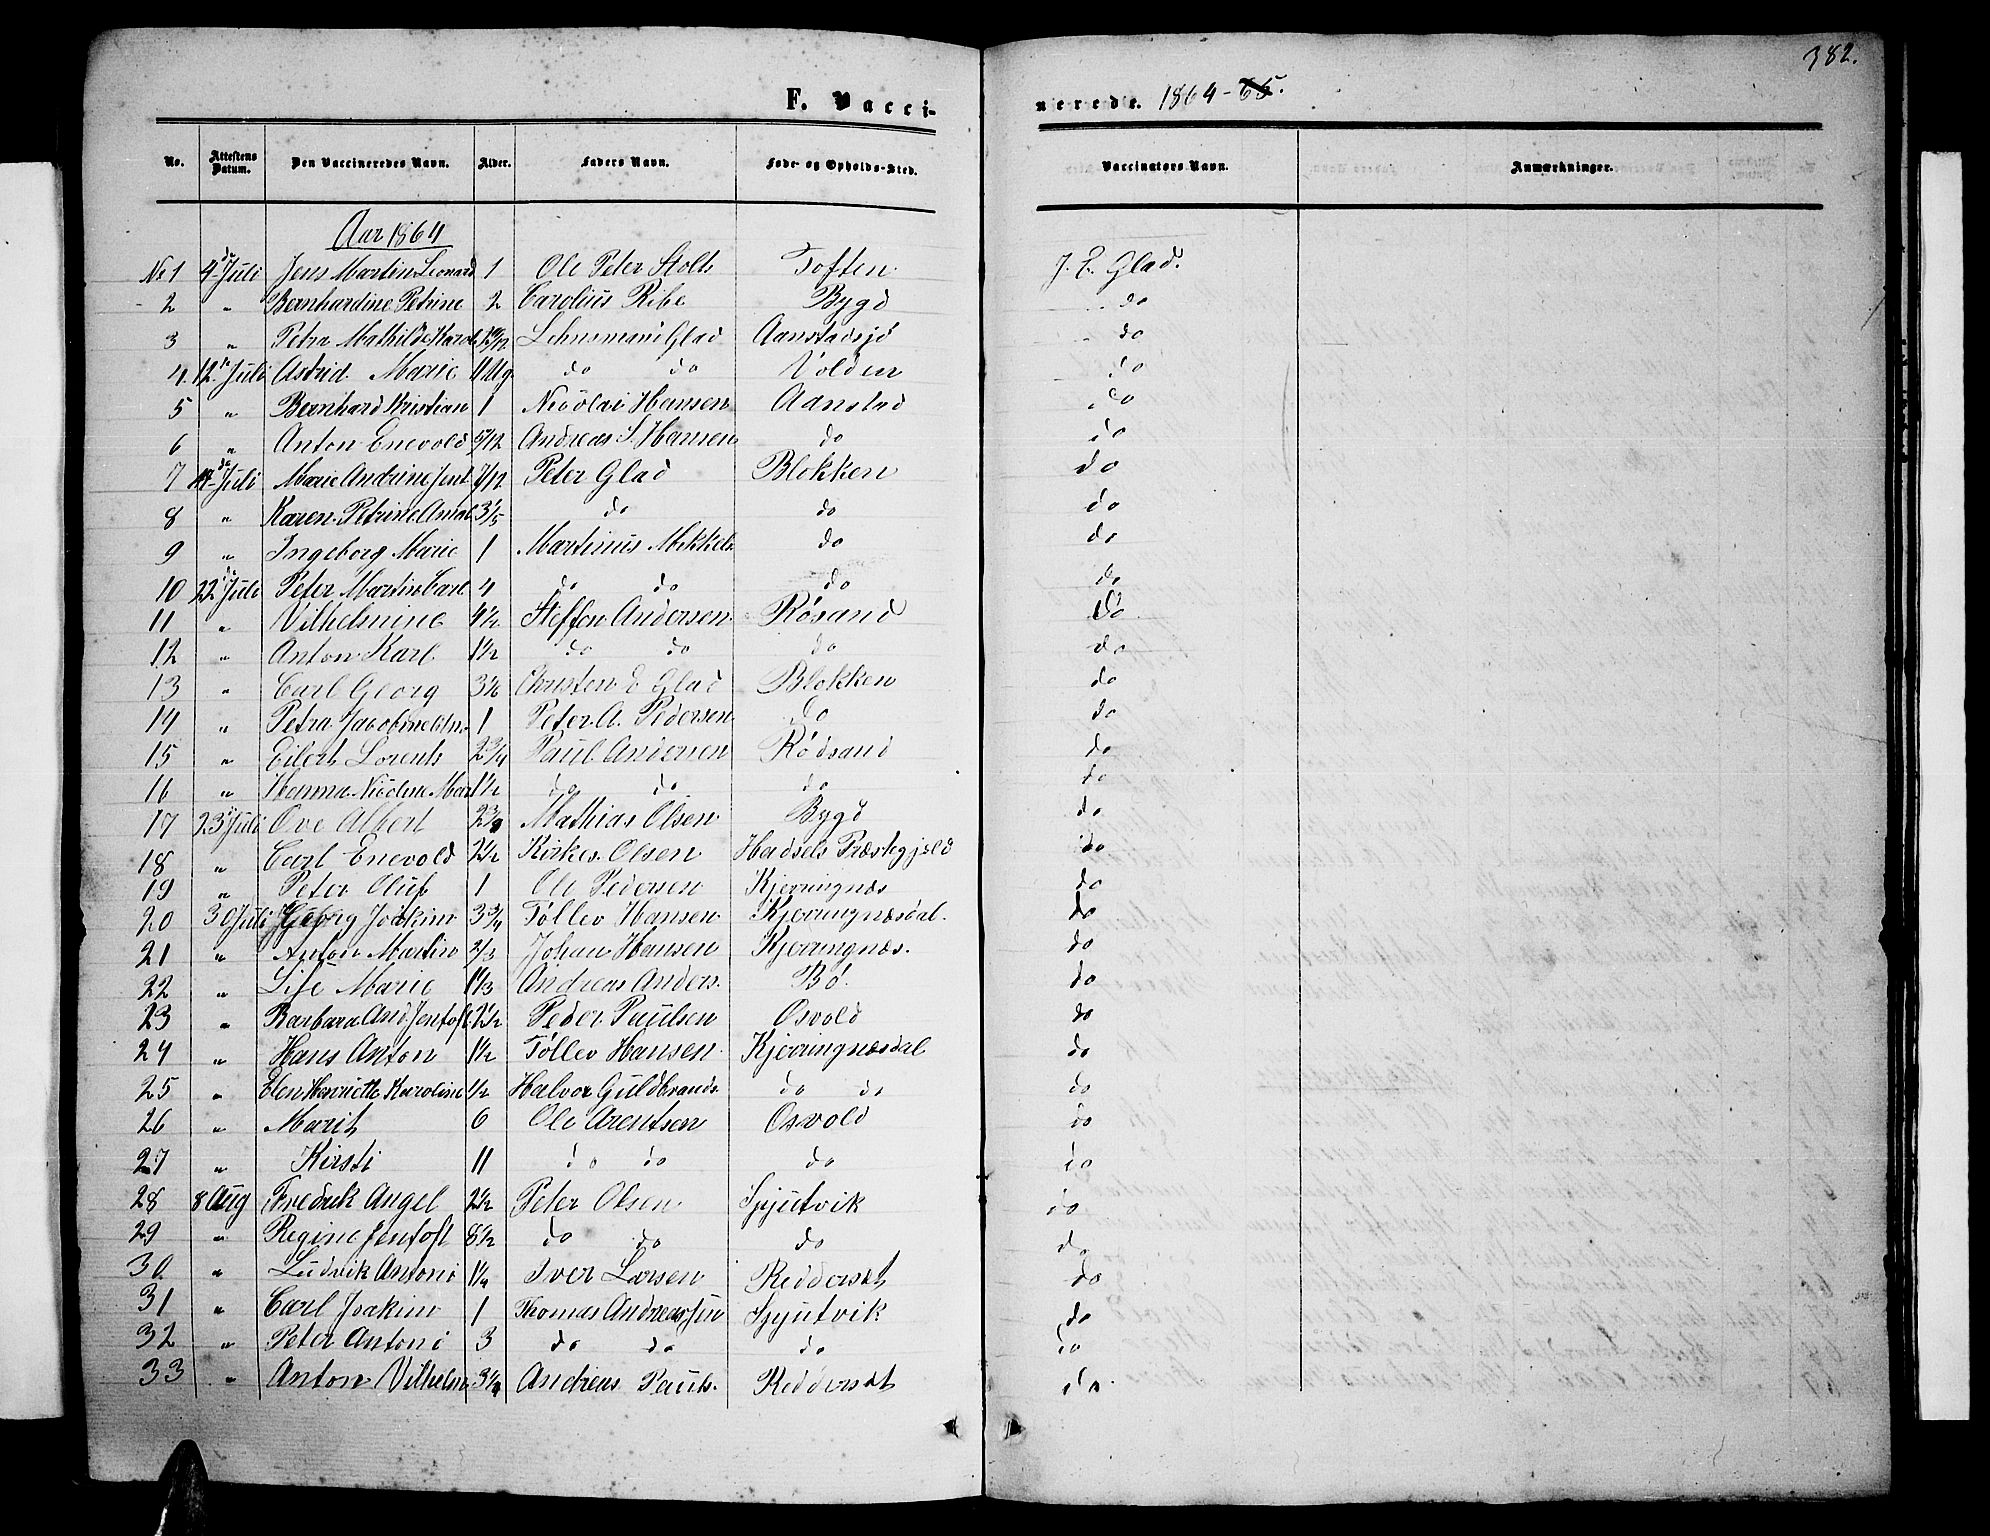 382.
F. Vacci-
nerede. 1864-65.
No. Attestens Datum. Den Vaccineredes Navn. Alder. Faders Navn. Føde- og Opholds-Sted. Vaccinators Navn. Anmærkninger.
Aar 1864
No 1 4de Juli Jens Martin Leonard 1 Ole Peter Stolt Toften J. E. Glad.
2 " Bernhardine Petrine 2 Carolius Ribe Bygd do
3 " Petra Mathilde Karol Lehnsmand Glad Aanstadsjd do
4. 12te Juli Astrid Marie 4 Ug. do do Volden do
5 " Bernhard Kristian 1 Nicolai Hansen Aanstad do
6 " Anton Enevold 5/12 Andreas S. Hansen do do
7 14de Juli Marie Andrine Jent 7/12 Peter Glad Blokken do
8 " Karen Petrine Amal 3 1/5 do do do
9 " Ingeborg Marie 1 Martinus Mikkels do do
10 22de Juli Peter Martin Carl 4 do do do do
11 " Vilhelmine 4 1/2 Steffen Andersen Røsand do
12 " Anton Karl 1 1/2 do do do do
13 " Carl Georg 3 1/6 Christen E Glad Blokken do
14 " Petra Jacobine 1 Peter A. Pedersen do do
15 " Eilert Lorents 2 3/4 Paul Andersen Rødsand do
16 " Hanna Nicoline Mar 1 1/2 do do do do
17 23de Juli Ove Albert 2 3/4 Mathias Olsen Bygd do
18 " Carl Enevold 2 1/2 Kirkes. Olsen Hadsels Præstegjeld do
19 " Peter Oluf 1 Ole Pedersen Kjerringnæs do
20 30 Juli Georg Joakim 3 3/4 Tøllev Hansen Kjerringnæsdal. do
21 " Anton Martin 2/3 Johan Hansen Kjerringnæs. do
22 " Lise Marie 1 1/3 Andreas Anders. Bø. do
23 " Barbara And. Jentoft 2 1/2 Peder Paulsen Osvold do
24 " Hans Anton 1 1/2 Tøllev Hansen Kjerringnæsdal do
25 " Elen Henriette Karoline 1/2 Halvor Guldbrands do do do
26 " Marit 6 Ole Arentsen Osvold do
27 " Kirsti 11 do do do do
28 8 Aug Fredrik Angel 2 1/2 Peter Olsen Spjutvik do
29 " Regine Jentoft 8 1/2 do do do do
30 " Ludvik Antoni 1 1/4 Iver Larsen Reddersæt do
31 " Carl Joakim 1 Thomas Andreassen Spjutvik do
32 " Peter Antoni 3 do do do do
33 " Anton Vilhelm 3 1/4 Andreas Pauls. Reddersæt do.